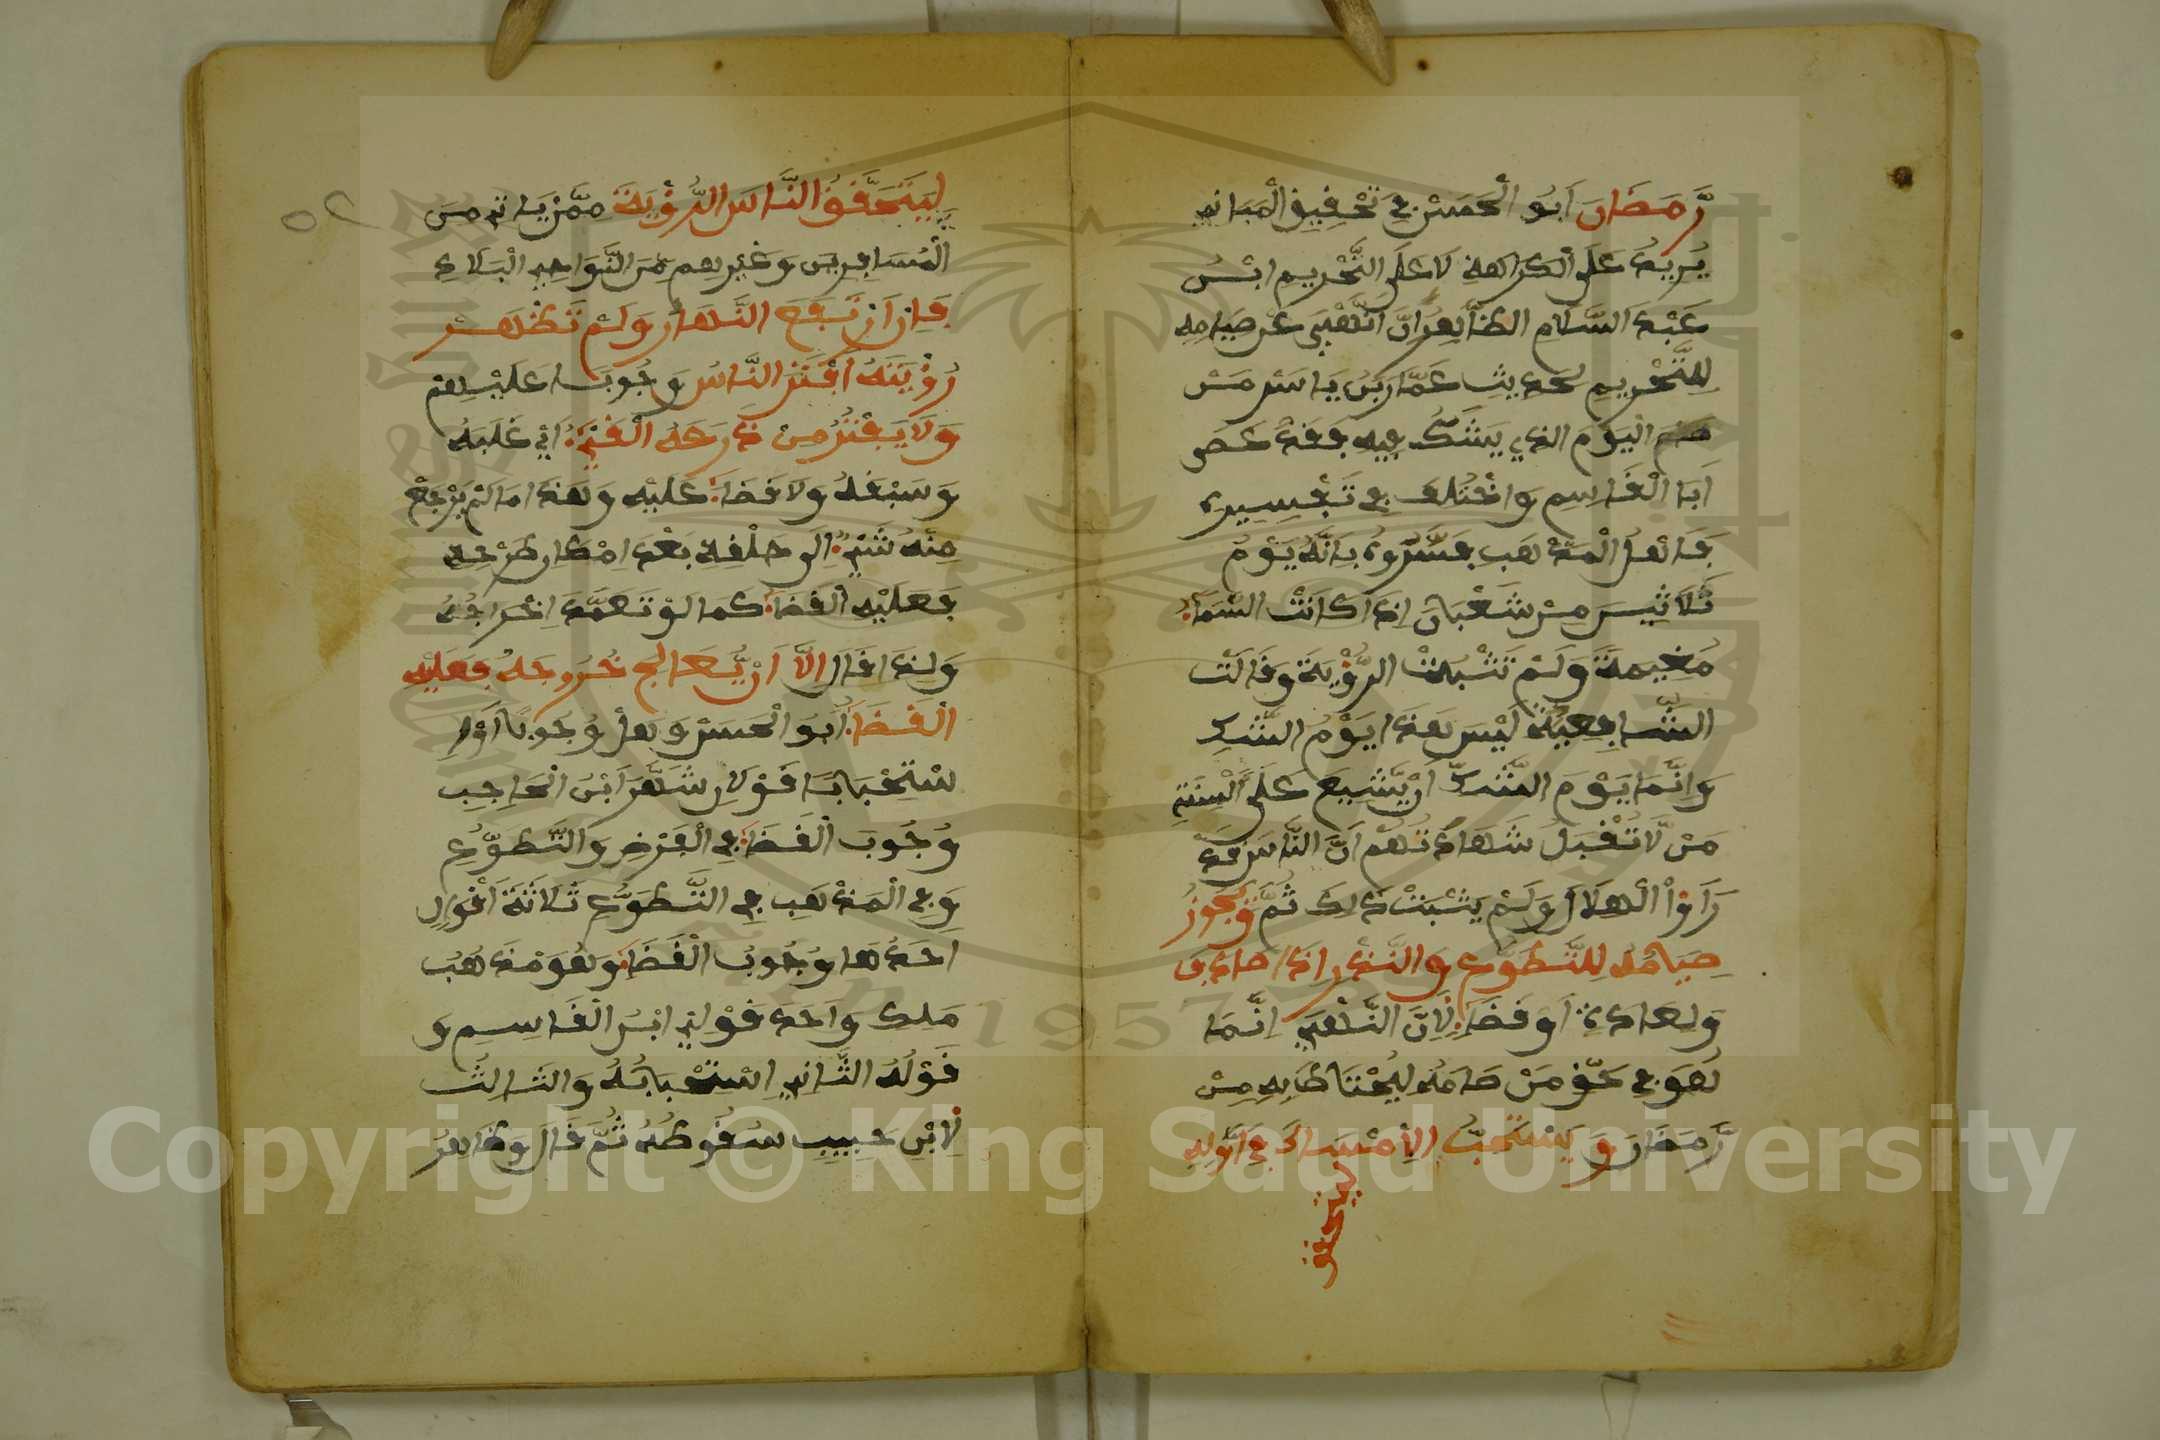 رَّمَضَانَ أَبُو الْحَسَنْ فِي تَحْقِيقِ الْمَبَانِي
يُرِيدُ عَلَى الْكَرَاهَةِ لَا عَلَى التَّحْرِيمِ ابْنُ
عَبْدِ السَّلَامِ الظَّاهِرُ أَنَّ النَّهْيَ عَنْ صِيَامِهِ
لِلتَّحْرِيمِ لِحَدِيثِ عَمَّارِ بْنِ يَاسَرْ مَنْ
صَامَ الْيَوْمَ الذِي يُشَكُّ فِيهِ فَقَدْ عَصَى
أَبَا الْقَاسِمِ وَاخْتُلِفَ فِي تَفْسِيرِهِ
فَأَهْلُ الْمَذْهَبِ فَسَّرُوهُ بِأَنَّهُ يَوْمُ
ثَلَاثِينَ مِنْ شَعْبَانَ إِذَا كَانَتْ السَّمَاءُ
مُغَيِّمَةً وَلَمْ تَثْبُتْ الرُّؤْيَةُ وَقَالَتْ
الشَّافِعِيَّةُ لَيْسَ هَذَا يَوْمُ الشَّكِّ
وَإِنَّمَا يَوْمُ الشَّكِّ أَنْ يَّشِيعَ عَلَى أَلْسِنَةِ
مَنْ لَّا تُقْبَلُ شَهَادَتُهُمْ أَنَّ النَّاسَ قَدْ
رَأَوْا الْهِلَالَ وَلَمْ يَثْبُتْ ذَلِكَ ثُمَّ وَيَجُوزُ
صِيَامُهُ لِلتَّطَوُّعِ وَالنَّذْرِ إِذَا صَادَفَ
وَلِعَادَةٍ أَوْ قَضَاءٍ لِأَنَّ النَّهْيَ إِنَّمَا
هُوَ فِي حَقِّ مَنْ صَامَهُ لِيُحْتَاطَ بِهِ مِنْ
رَّمَضَانَ وَيُسْتَحَبُّ الْإِمْسَاكُ فِي أَوَّلِهِ
ليتحقق
لِيَتَحَقَّقَ النَّاسُ الرُّؤْيَةَ مِمَّنْ يَأْتِي مِنَ
الْمُسَافِرِينَ وَغَيْرِهِمْ مِنَ النَّوَاحِي الْبَلَادِ
فَإِنْ ارْتَفَعَ النَّهَارُ وَلَمْ تَظْهَرْ
رُؤْيَتُهُ أَفْطَرَ النَّاسُ وُجُوبًا عَلَيْهِمْ
وَلَا يُفْطِرُ مَنْ ذَرَعَهُ الْقَيْءُ أَيْ غَلَبَهُ
وَسَبَقَهُ وَلَا قَضَاءَ عَلَيْهِ وَهَذَا مَا لَمْ يَرْجِعْ
مِنْهُ شَيْءٌ إِلَى حَلْقِهِ بَعْدَ إِمْكَانِ طَرْحِهِ
فَعَلَيْهِ الْقَضَاءُ كَمَا لَوْ تَعَمَّدَ إِخْرَاجُهُ
وَلِذَا قَالَ إِلَّا أَنْ يُّعَالِجَ خُرُوجَهُ فَعَلَيْهِ
الْقَضَاءُ أَبُو الْحَسَنْ وَهَلْ وُجُوبًا أَوْ
اسْتِحْبَابًا قَوْلَانِ شَهَّرَ ابْنُ الْحَاجِبِ
وُجُوبَ الْقَضَاءِ فِي الْفَرْضِ وَالتَّطَوُّعِ
وَفِي الْمَذْهَبِ فِي التَّطَوُّعِ ثَلَاثَةُ أَقْوَالٍ
أَحَدُهَا وُجُوبُ الْقَضَاءِ وَهُوَ مَذْهَبُ
مَلِكِ وَأَحَدُ قَوْلَيْ ابْنُ الْقَاسِمِ وَ
قَوْلُهُ الثَّانِي اسْتِحْبَابُهُ وَالثَالِثُ
لِابْنِ حَبِيبٍ سُقُوطُهُ ثُمَّ قَالَ وَظَاهِرُ
Copyright © King Saud University
1957